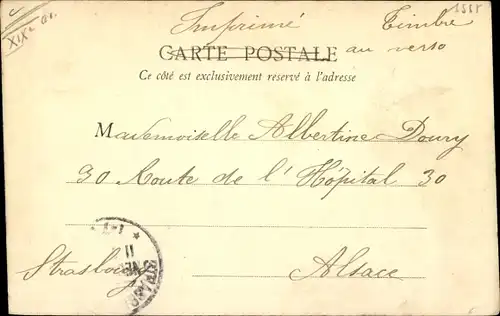 Imprimé Timbre
au verso
CARTE POSTALE
Ce côté est exclusivement réservé à l'adresse
Mademoiselle Albertine Doury
30 Route de l'Hôpital 30
Strasbourg
Alsace